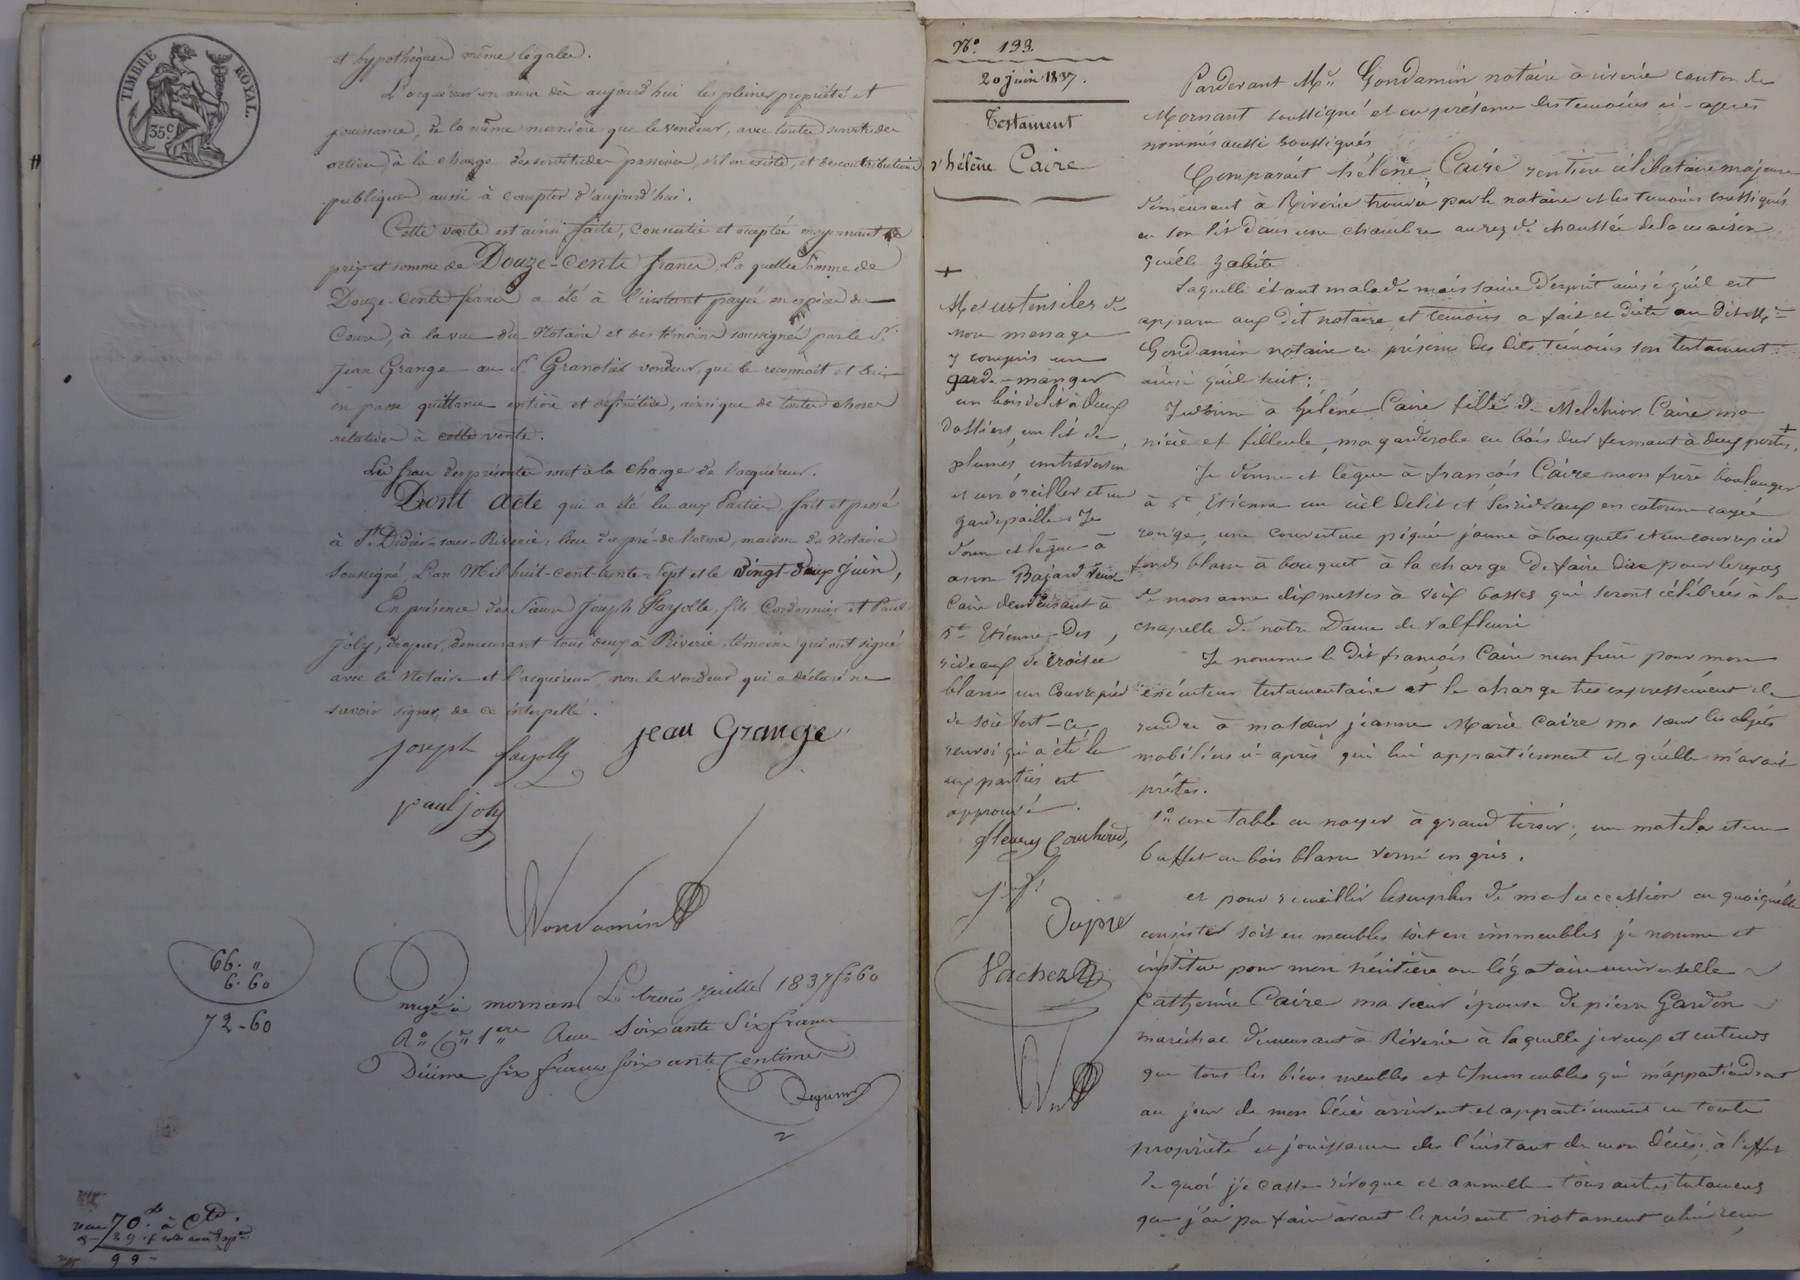 TIMBRE ROYAL
35c
et hypothèques même légales.
L'acquéreur en aura dès aujourd'hui les pleines propriété et
jouissance, de la même manière que le vendeur, avec toutes servitudes
actives, à la charge des servitudes passives, s'il en existe, et des contributions
publiques aussi à compter d'aujourd'hui.
Cette vente est ainsi faite, consentie et acceptée moyennant le
prix et somme de Douze-cents francs, la quelle somme de
Douze-cents francs a été à l'instant payée en espèces de
Cours, à la vue du Notaire et des témoins soussignés, par le Sr
Jean Grange au Sr Granotier vendeur, qui le reconnait et lui
en passe quittance entière et définitive, ainsi que de toutes choses
relatives à cette vente.
Les frais des présentes sont à la charge de l'acquéreur.
Dont Acte qui a été lu aux Parties, fait et passé
à St Didier-sous-Riverie, lieu du pré-de-l'orme, maison du Notaire
soussigné, L'an Mil huit-cent-trente-sept et le Vingt-deux Juin,
En présence des Sieurs Joseph Fayolle, fils Cordonnier et Paul
Joly, demeurant tous deux à Riverie, témoins qui ont signé
avec le Notaire et l'acquéreur, non le vendeur qui a déclaré ne
savoir signer, de ce interpellé.
joseph fayolle jean Grange
paul joly
Gondamin
66. "
6. 60
72-60
à mornant Le trois juillet 1837 fo 60
Ro Co 1ere Reçu Soixante Six francs
Décime Six francs soixante Centimes
70. à Cte.
99-
No. 133.
20 juin 1837.
Testament
d'hélène Caire
+
Mes ustensiles de
mon menage
y compris un
garde-manger
un bois de lit à deux
dossiers, un lit de
plumes, un traversin
et un oreiller et un
gardepaille. Je
donne et lègue à
anne Bajard Veuve
Caire demeurant à
St Etienne, Des
rideaux de Croisée
blancs un Couvrepied
de soie vert - Ce
renvoi qui a été lu
aux parties est
approuvé.
fleury Couhard,
Dupre
Vachez
Pardevant Me Gondamin notaire à riverie canton de
Mornant soussigné et en présence des temoins ci-après
nommés aussi soussignés
Comparait hélène Caire rentière célibataire majeure
demeurant à Riverie trouvée par le notaire et les temoins soussignés
en son lit dans une chambre au rez de chaussée de la maison
qu'elle habite
Laquelle étant malade mais saine d'esprit ainsi qu'il est
apparu aux dit notaire et temoins a fait et dicté au dit Me
Gondamin notaire en présence des dits témoins son testament
ainsi qu'il suit:
Je donne à hélène Caire fille de Melchior Caire ma
nièce et filleule, ma garderobe en bois dur fermant à deux portes, +
Je donne et lègue à françois Caire mon frère boulanger
à St Etienne un ciel de lit et ses rideaux en cotonne rayée
rouge, une couverture piquée jaune à bouquets et un couvrepied
fonds blanc à bouquet à la charge de faire dire pour le repos
de mon ame dix messes à voix basses qui seront célébrées à la
chapelle de notre Dame de Valfleuri
Je nomme le dit françois Caire mon frère pour mon
exécuteur testamentaire et le charge tres expressément de
rendre à ma sœur jeanne Marie Caire ma sœur les objets
mobiliers ci-après qui lui appartiennent et qu'elle m'avait
prétés.
1o une table en noyer à grand tiroir, un matela et un
buffet en bois blanc verni en gris.
et pour recueillir le surplus de ma succession en quoi qu'elle
consiste soit en meubles soit en immeubles je nomme et
institue pour mon héritière ou légataire universelle
Catherine Caire ma sœur épouse de pierre Gardon
maréchal demeurant à Riverie à laquelle je veux et entends
que tous les biens meubles et immeubles qui m'appartiendront
au jour de mon décès arrivent et appartiennent en toute
propriété et jouissance dès l'instant de mon décès, à l'effet
de quoi je casse révoque et annulle tous autres testamens
que j'ai pu faire avant le présent notament celui reçu